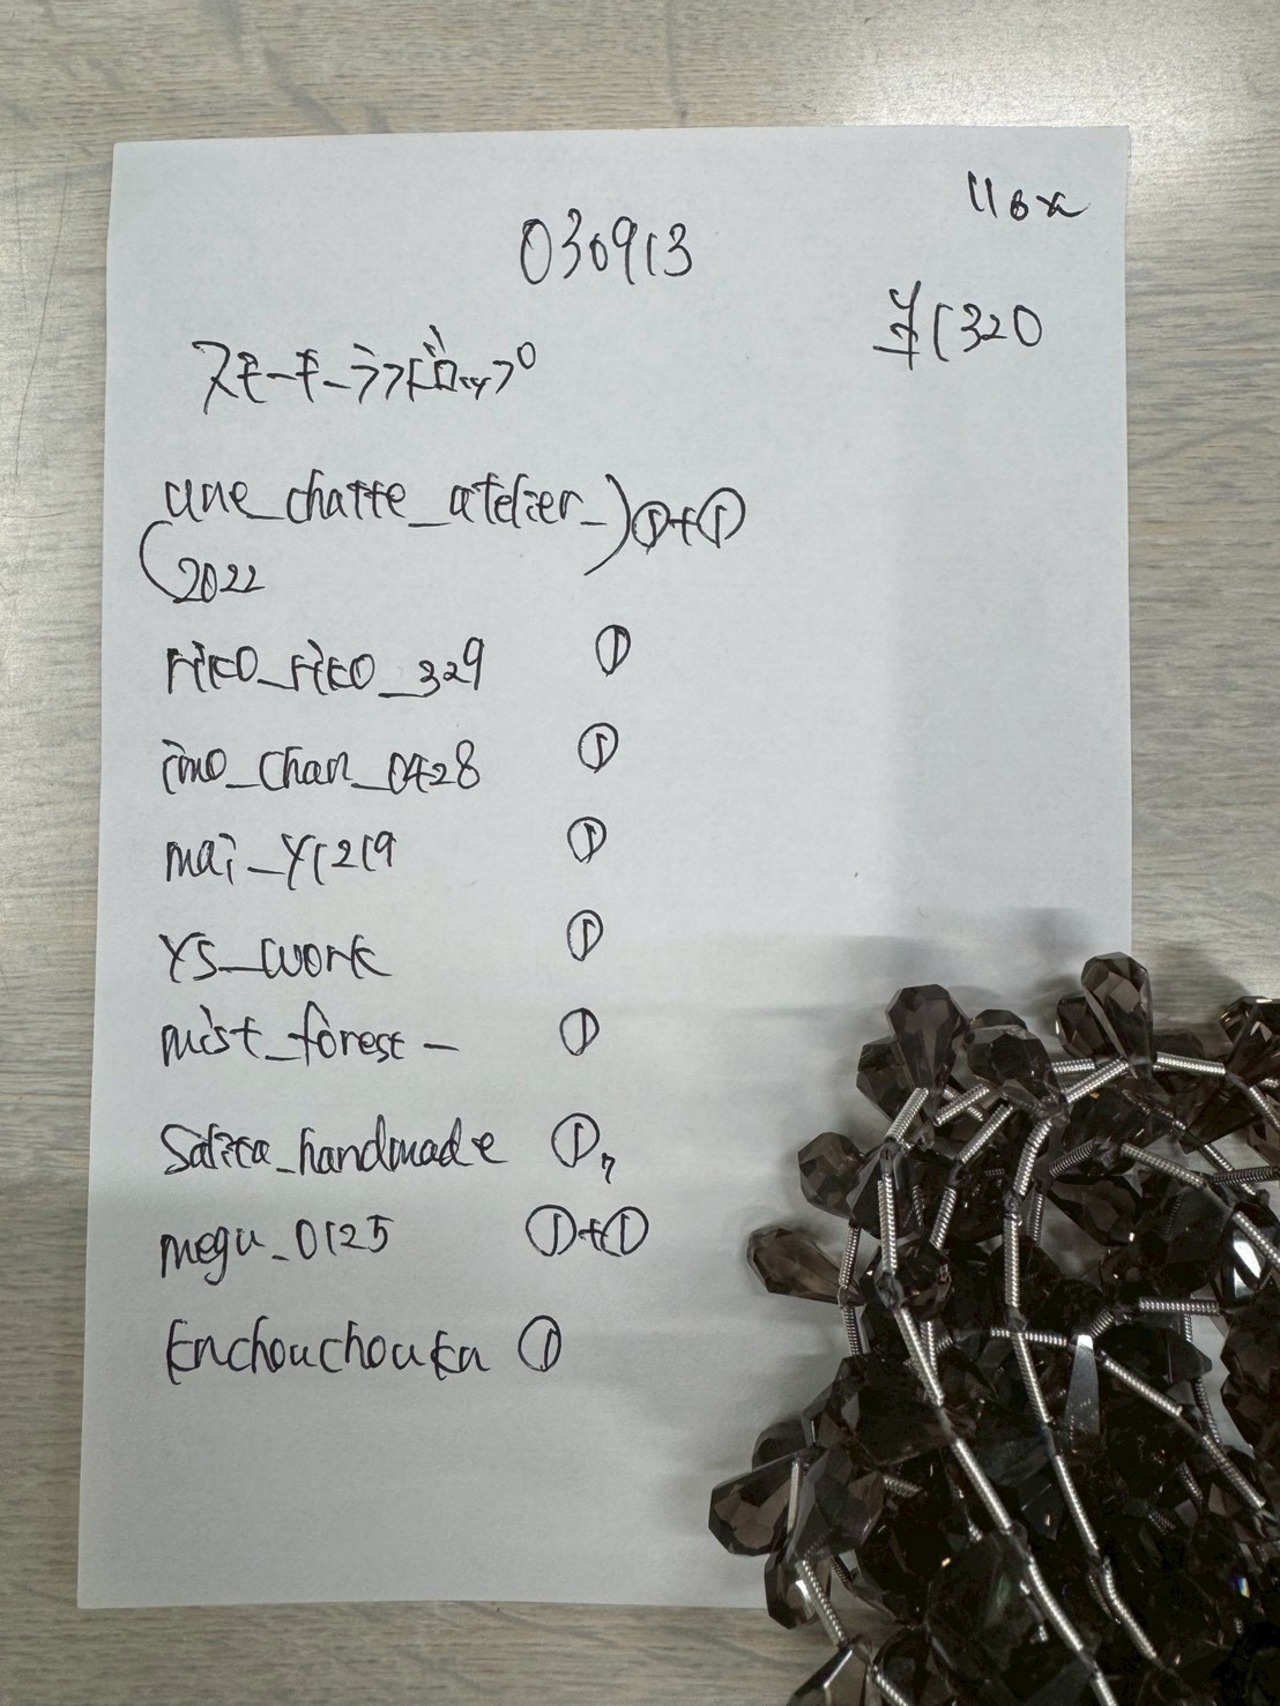 030913
¥1320
スモーキークオードロップ
une_chatte_atelier_) ①+①
(2022
riko_riko_329 ①
imo_chan_0428 ①
mai_y1219 ①
ys_work ①
mist_forest_ ①
Salita_handmade ①
megu_0125 ①+①
knchouchouka ①